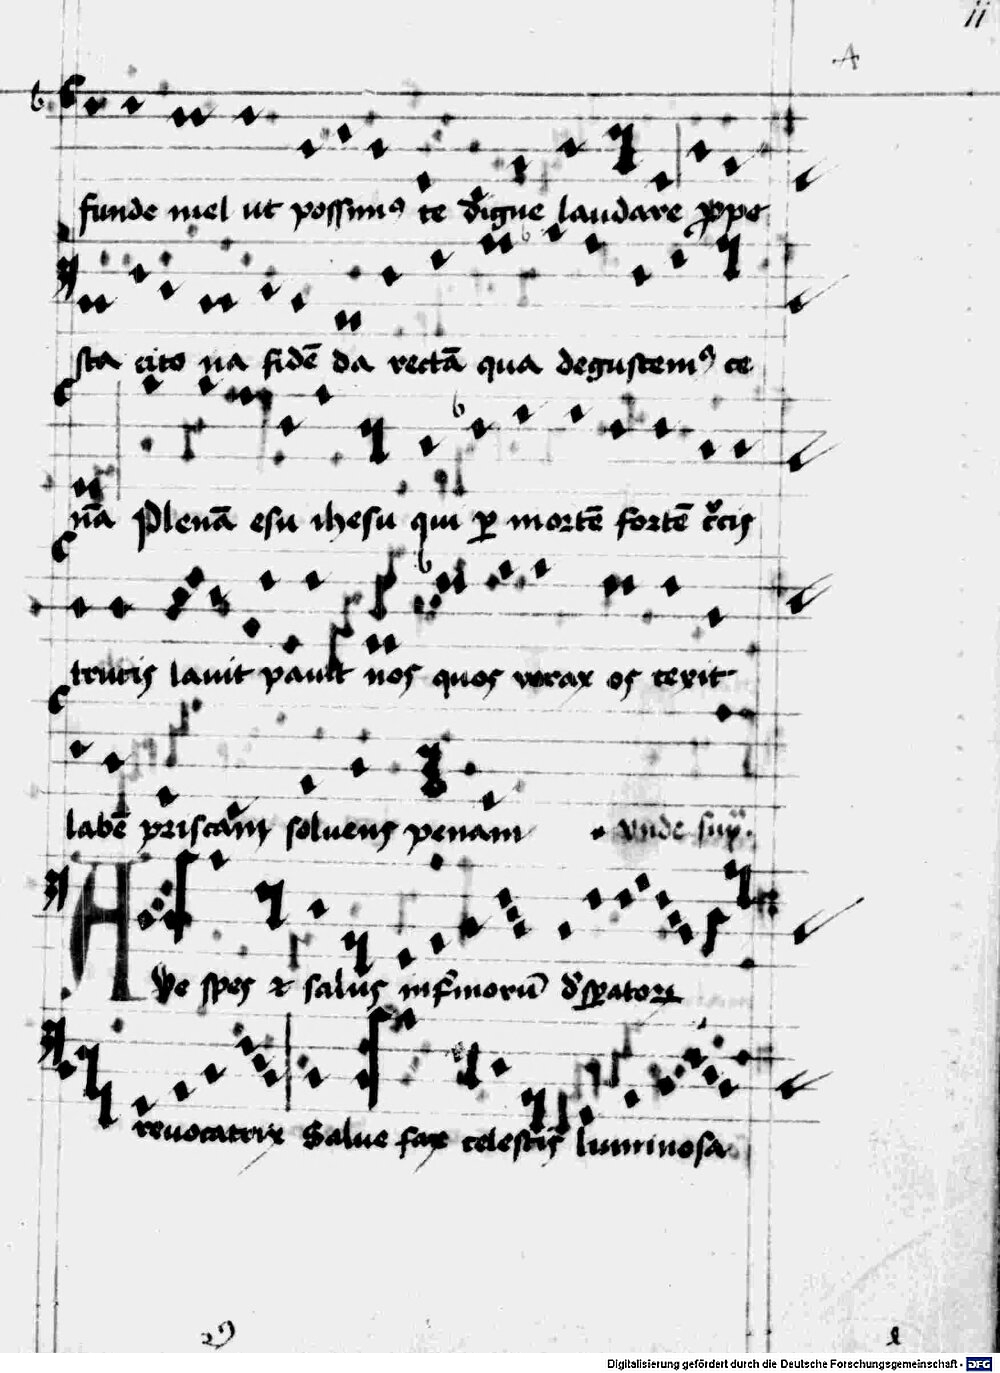 ii
A
funde mel ut possimꝰ te digne laudare ꝓpe
sta cito na fidē da rectā qua degustemꝰ ce
nā Plenā esu ihesu qui ꝑ mortē fortē c̄cis
trucis lauit pauit nos quos vorax os texit
labē priscam soluens penam vnde
Ave spes et salus infirmorū dꝑatorꝝ
reuocatrix Salue fax celestis luminosa
Digitalisierung gefördert durch die Deutsche Forschungsgemeinschaft - DFG